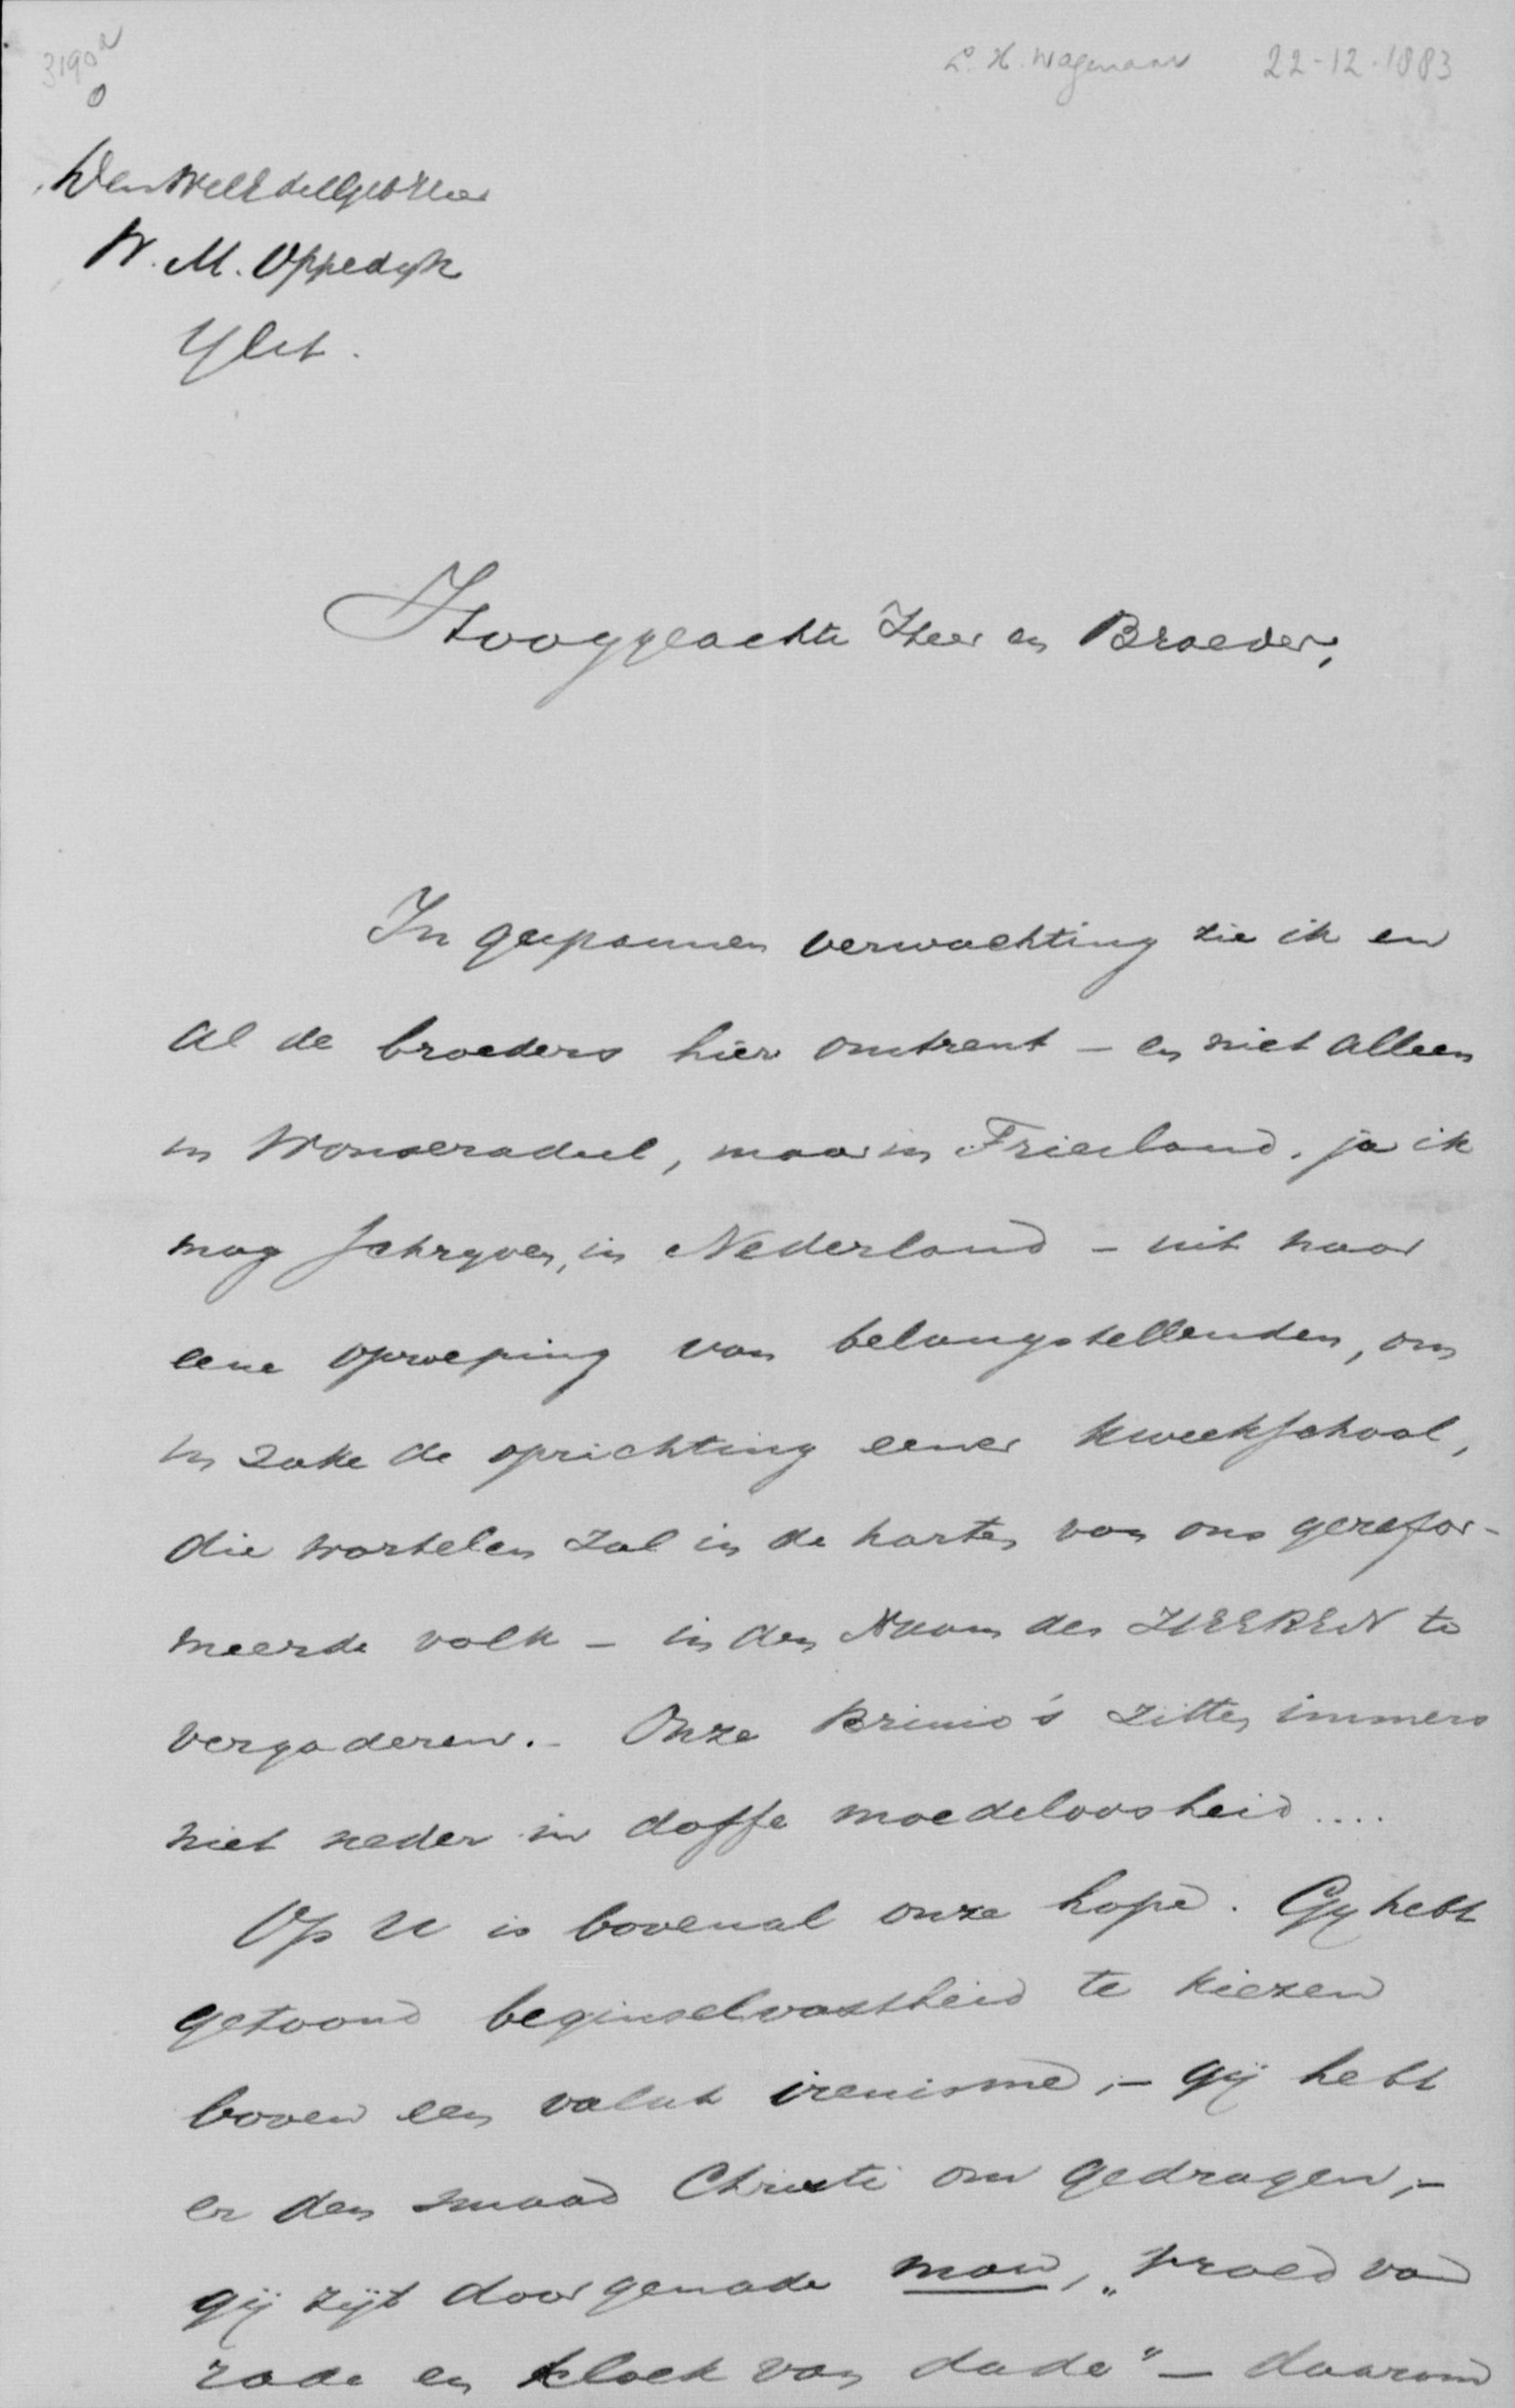 3190a
L. H. Wagenaar 22-12-1883
Den WelEdelGeb Heer
W. M. Oppedijk
Ylst.
Hooggeachte Heer en Broeder,
In gespannen verwachting zie ik en
al de broeders hier omtrent – en niet alleen
in Wonseradeel, maar in Friesland, ja ik
mag schryven, in Nederland – uit naar
eene oproeping van belangstellenden, om
in zake de oprichting eener kweekschool,
die wortelen zal in de harten van ons gerefor-
meerde volk – in den Naam des HEEREN te
vergaderen. – Onze Brinio's zitten immers
niet neder in doffe moedeloosheid ....
Op U is bovenal onze hope. Gy hebt
getoond beginselvastheid te kiezen
boven een valsch irenisme, – gij hebt
er den smaad Christi om gedragen, –
gij zijt door genade man, „vroed van
rade en kloek van dade" – daarom